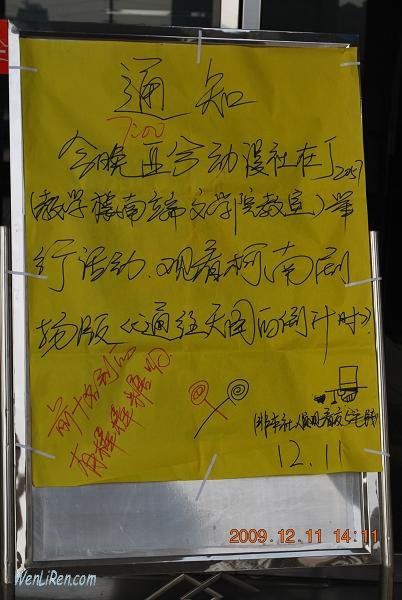 通知
7:00
今晚亚兮动漫社在J2057
(教学楼南端文学院教室)举
行活动.观看柯南剧
场版《通往天国的倒计时》.
前十名到的
有棒棒糖哦
(非本社人员观看
12.11
2009.12.11 14:11
WenLiRen.com